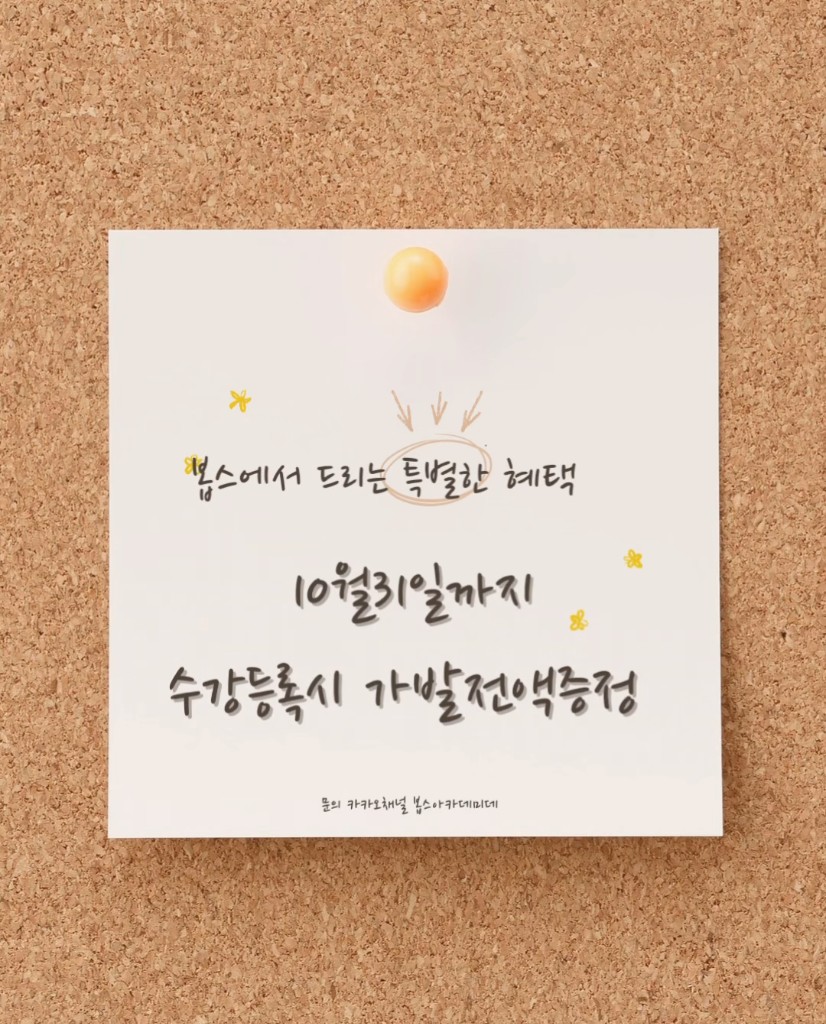 봅스에서 드리는 특별한 혜택
10월31일까지
수강등록시 가발전액증정
문의 카카오채널 봅스아카데미데